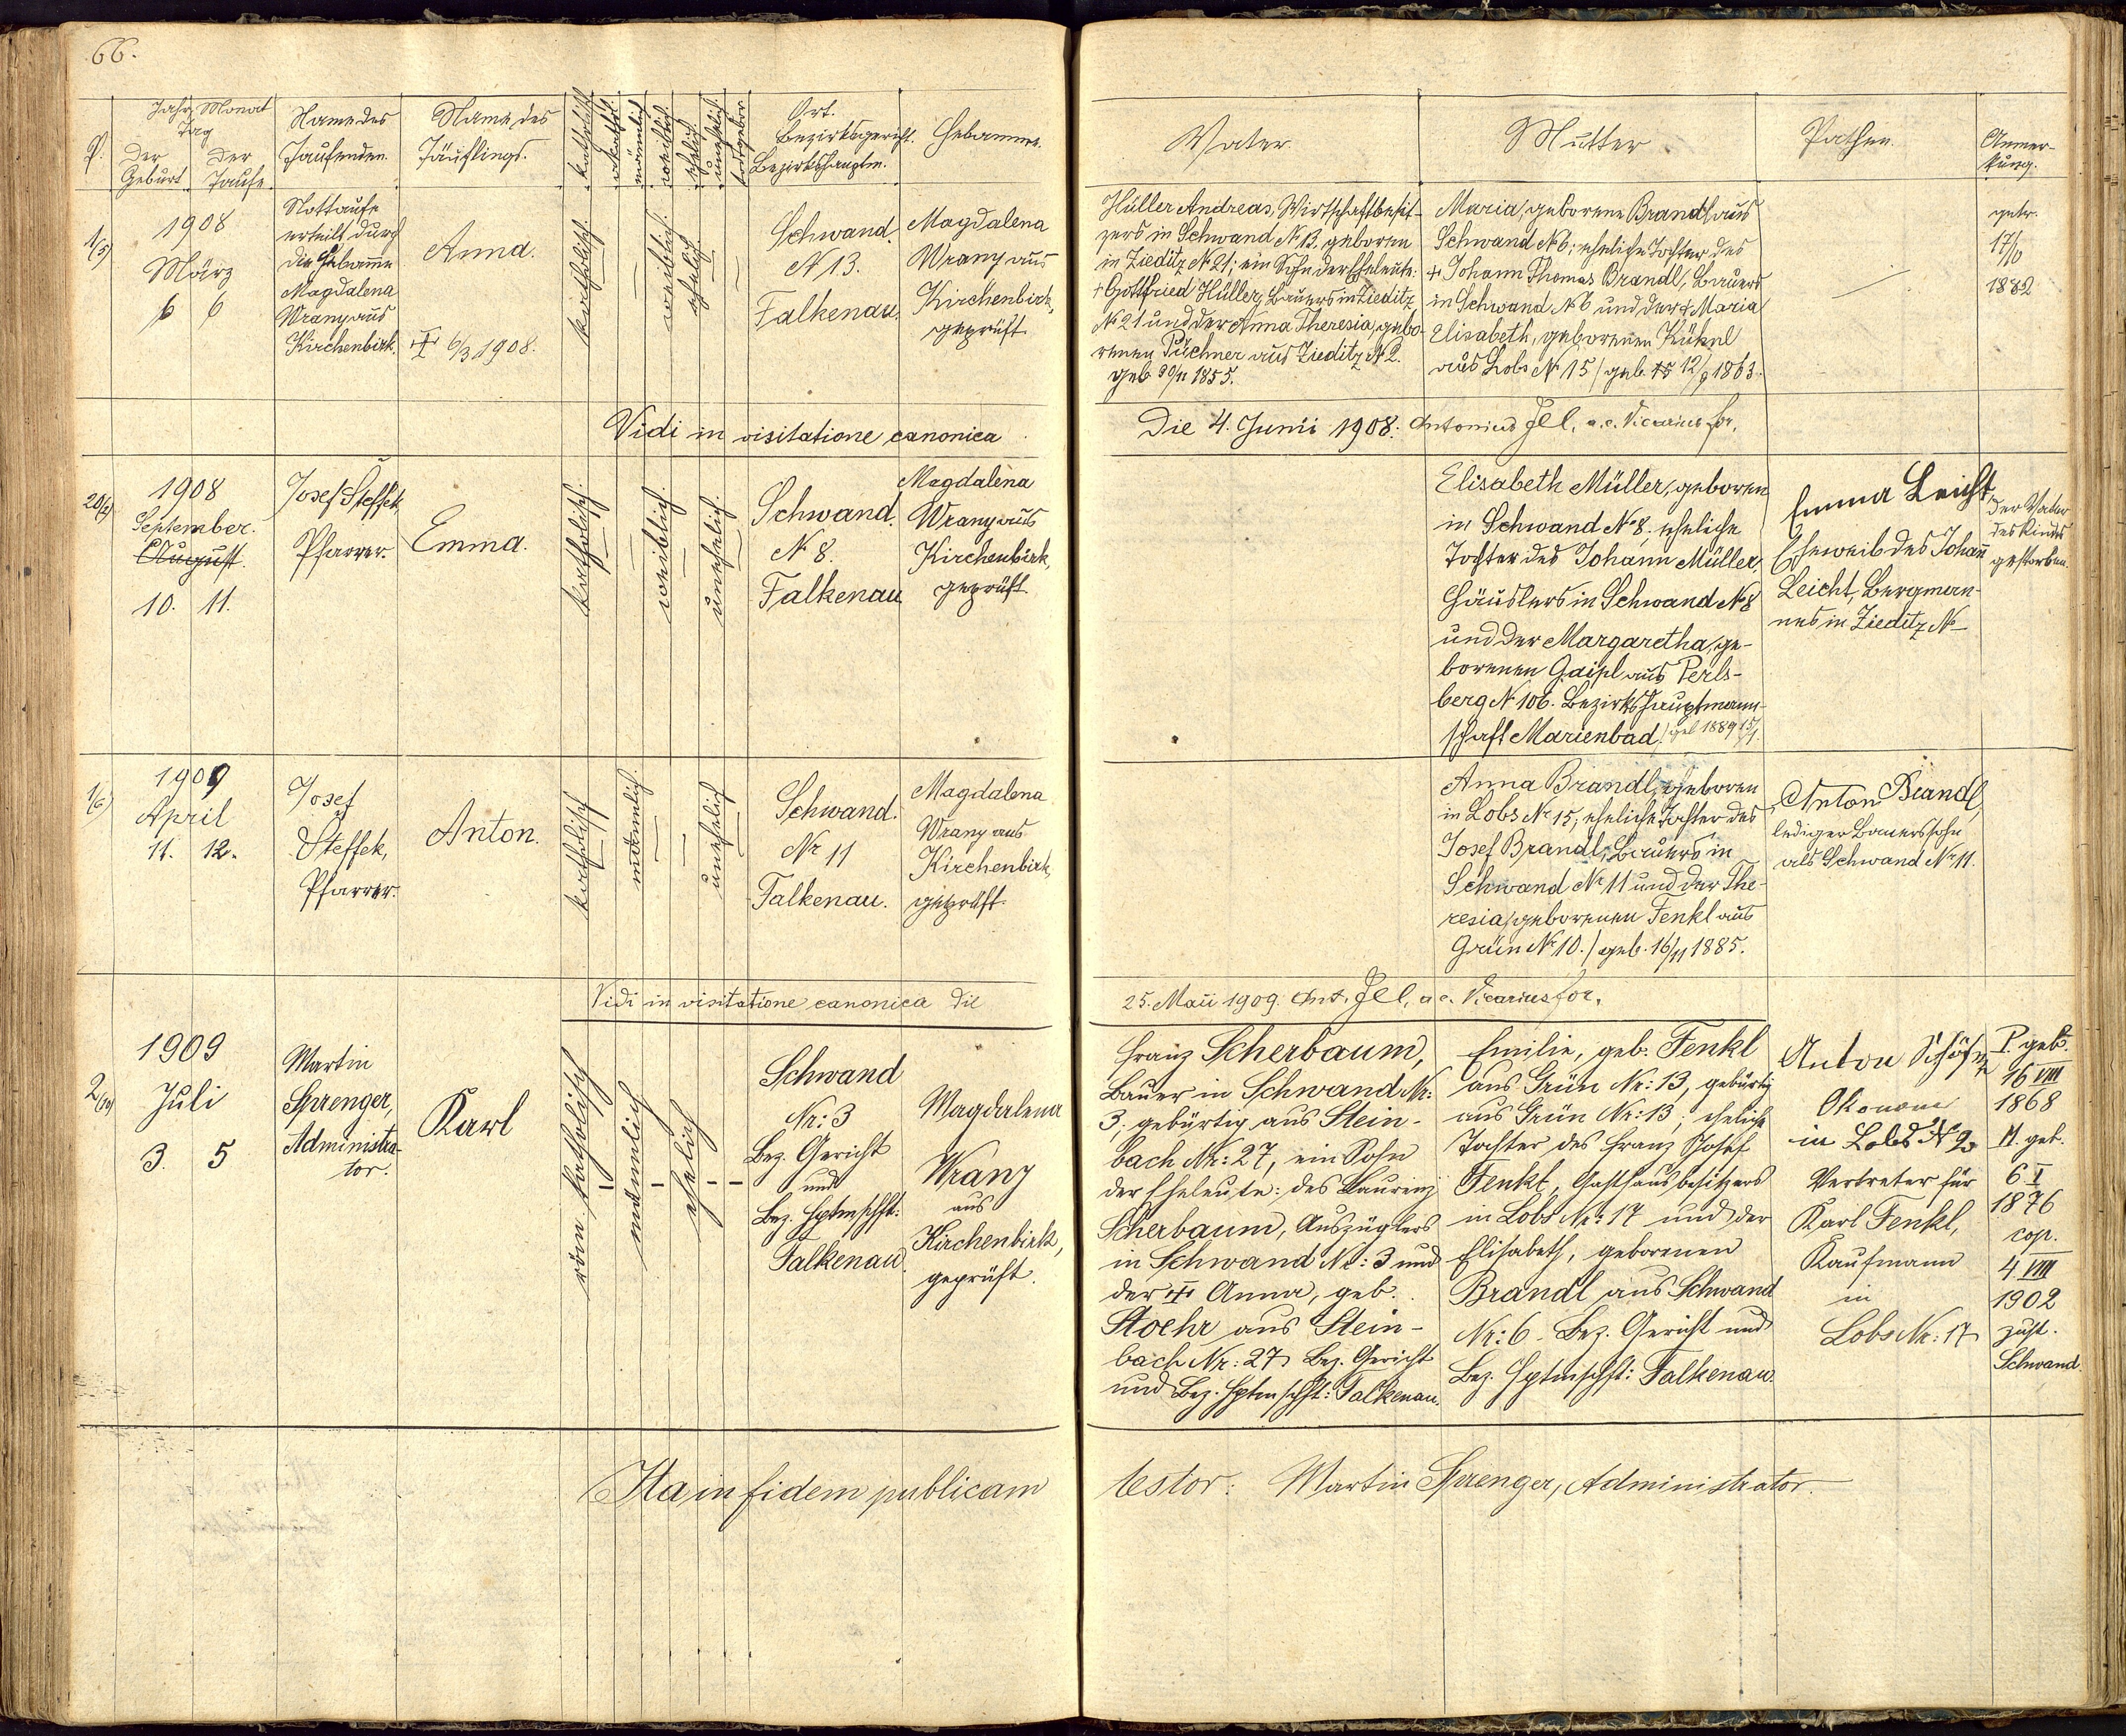 66.
Jahr, Monat
Tag
der Geburt
der Taufe
Name des
Taufenden.
Name des
Täuflings.
katholisch
akathol.
männlich
weiblich
ehelich
unehelich
todtgebor.
Ort.
Bezirksgericht.
Bezirkshauptm.
Hebamme.
Vater.
Mutter
Pathen.
Anmer-
kung.
1/5)
1908
März
6 6
Nottaufe
erteilt durch
die Hebamme
Magdalena
Wrany aus
Kirchenbirk.
Anna.
6/3 1908.
katholisch.
—
weiblich.
ehelich
—
Schwand.
N 13.
Falkenau.
Magdalena
Wrany aus
Kirchenbirk,
geprüft
Hüller Andreas, Wirtschaftbesit-
zers in Schwand N. 13. geboren
in Zieditz N. 21; ein Sohn der Eheleute:
† Gottfried Hüller, Bauers in Zieditz
N. 21 und der Anna Theresia, gebo-
renen Püchner aus Zieditz N. 2.
geb. 30/11 1855.
Maria, geborene Brandl aus
Schwand N 6; eheliche Tochter des
† Johann Thomas Brandl, Bauers
in Schwand N 6 und der † Maria
Elisabeth, geborenen Kühnl
aus Lobs N. 15 / geb. 12/9 1863.
getr.
17/10
1882
Vidi in visitatione canonica
Die 4. Junii 1908. Antonius Jll, a.e. Vicarius for.
20/4)
1908
September.
August.
10. 11.
Josef Steffek,
Pfarrer.
Emma.
katholisch.
—
weiblich.
—
unehelich.
Schwand.
N. 8.
Falkenau
Magdalena
Wrany aus
Kirchenbirk,
geprüft.
Elisabeth Müller, geboren
in Schwand N. 8, eheliche
Tochter des Johann Müller,
Häuslers in Schwand N. 8
und der Margaretha, ge-
borenen Gaipl aus Perls-
berg N. 106. Bezirkshauptmann-
schaft Marienbad / geb 1889 15/1.
Emma Leicht,
Eheweib des Johann
Leicht, Bergman-
nes in Zieditz N —
Der Vater
des Kindes
gestorben.
1/6)
1909
April
11. 12.
Josef
Steffek,
Pfarrer.
Anton.
katholisch
männlich.
—
—
unehelich
Schwand.
Nr 11
Falkenau.
Magdalena
Wrany aus
Kirchenbirk,
geprüft.
Anna Brandl, geboren
in Lobs Nr 15, eheliche Tochter des
Josef Brandl, Bauers in
Schwand Nr 11 und der The-
resia, geborenen Fenkl aus
Grün Nr 10. / geb. 16/11 1885.
Anton Brandl,
lediger Bauerssohn
aus Schwand Nr 11.
Vidi in visitatione canonica die
25. Maii 1909. Ant. Jll, a e. Vicarius for.
2/10)
1909
Juli
3. 5
Martin
Sprenger,
Administra-
tor.
Karl
röm. katholisch
—
männlich
—
ehelich
— —
Schwand
Nr: 3
Bez. Gericht
und
Bez. Hptmschft:
Falkenau.
Magdalena
Wrany
aus
Kirchenbirk,
geprüft.
Franz Scherbaum,
Bauer in Schwand Nr:
3, gebürtig aus Stein-
bach Nr: 27, ein Sohn
der Eheleute: des Laurenz
Scherbaum, Auszüglers
in Schwand Nr: 3 und
der † Anna, geb.
Stoehr aus Stein-
bach Nr: 27, Bez. Gericht
und Bez. Hptmschft: Falkenau.
Emilie, geb. Fenkl
aus Grün Nr: 13, gebürtig
aus Grün Nr: 13, eheliche
Tochter des Franz Josef
Fenkl, Gasthausbesitzers
in Lobs Nr: 17 und der
Elisabeth, geborenen
Brandl aus Schwand
Nr: 6. Bez. Gericht und
Bez. Hptmschft: Falkenau.
Anton
Ökonom
in Lobs N
Vertreter für
Karl Fenkl,
Kaufmann
in
Lobs Nr: 17
P. geb.
16 VIII
1868
M. geb.
6. I
1876
cop.
4. VIII
1902
zust.
Schwand.
Ita in fidem publicam
testor: Martin Sprenger, Administrator.